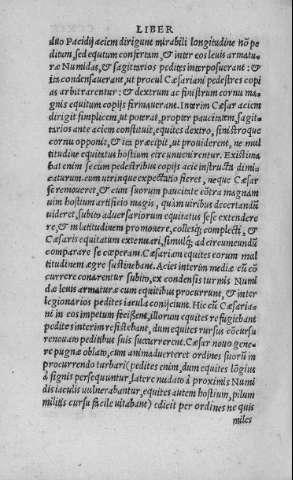 LIBER
duo Pacidij aciem dirigunt mirabili longitudine nō pe
ditum, sed equitum confertam, & inter eos leuis armatu-
ræ Numidas, & sagitarios pedites interposuerant: &
ita condensauerant, ut procul Cæsariani pedestres copi
as arbitrarentur: & dextrum ac sinistrum cornu ma-
gnis equitum copijs firmauerant. Interim Cæsar aciem
dirigit simplicem, ut poterat, propter paucitatem, sagit-
tarios ante aciem constituit, equites dextro, sinistroque
cornu opponit, & ita præcipit, ut prouiderent, ne mul
titudine equitatus hostium circunuenirentur. Existima
bat enim se eum pedestribus copijs acie instructa dimi-
caturum. cum utrinque expectatio fieret, neque Cæsar
se remoueret, & cum suorum paucitate cōtra magnam
uim hostium artificio magis, quàm uiribus decertandū
uideret, subito aduersariorum equitatus sese extendere
re, & in latitudinem promouere, collesq; complecti, &
Cæsaris equitatum extenuari, simulq; ad circumeundū
comparare se cœperam Cæsariam equites eorum mul
titudinem ægre sustinebant. Acies interim mediæ cū cō
currere conarentur subito, ex condensis turmis Numi
dæ leuis armaturæ cum equitibus procurrunt, & inter
legionarios pedites iacula conijciunt. Hic cū Cæsaria
ni in eos impetum fecissent, illorum equites refugiebant
pedites interim resistebant, dum equites rursus cōcursu
renouato peditibus suis succurrerent. Cæsar nouo gene
re pugnæ oblato, cum animaduerteret ordines suorū in
procurrendo turbari (pedites enim, dum equites lōgius
à signis persequuntur, latere nudato à proximis Numi
dis iaculis uulnerabantur, equites autem hostium, pilum
militis cursu facile uitabant) edicit per ordines ne quis
miles